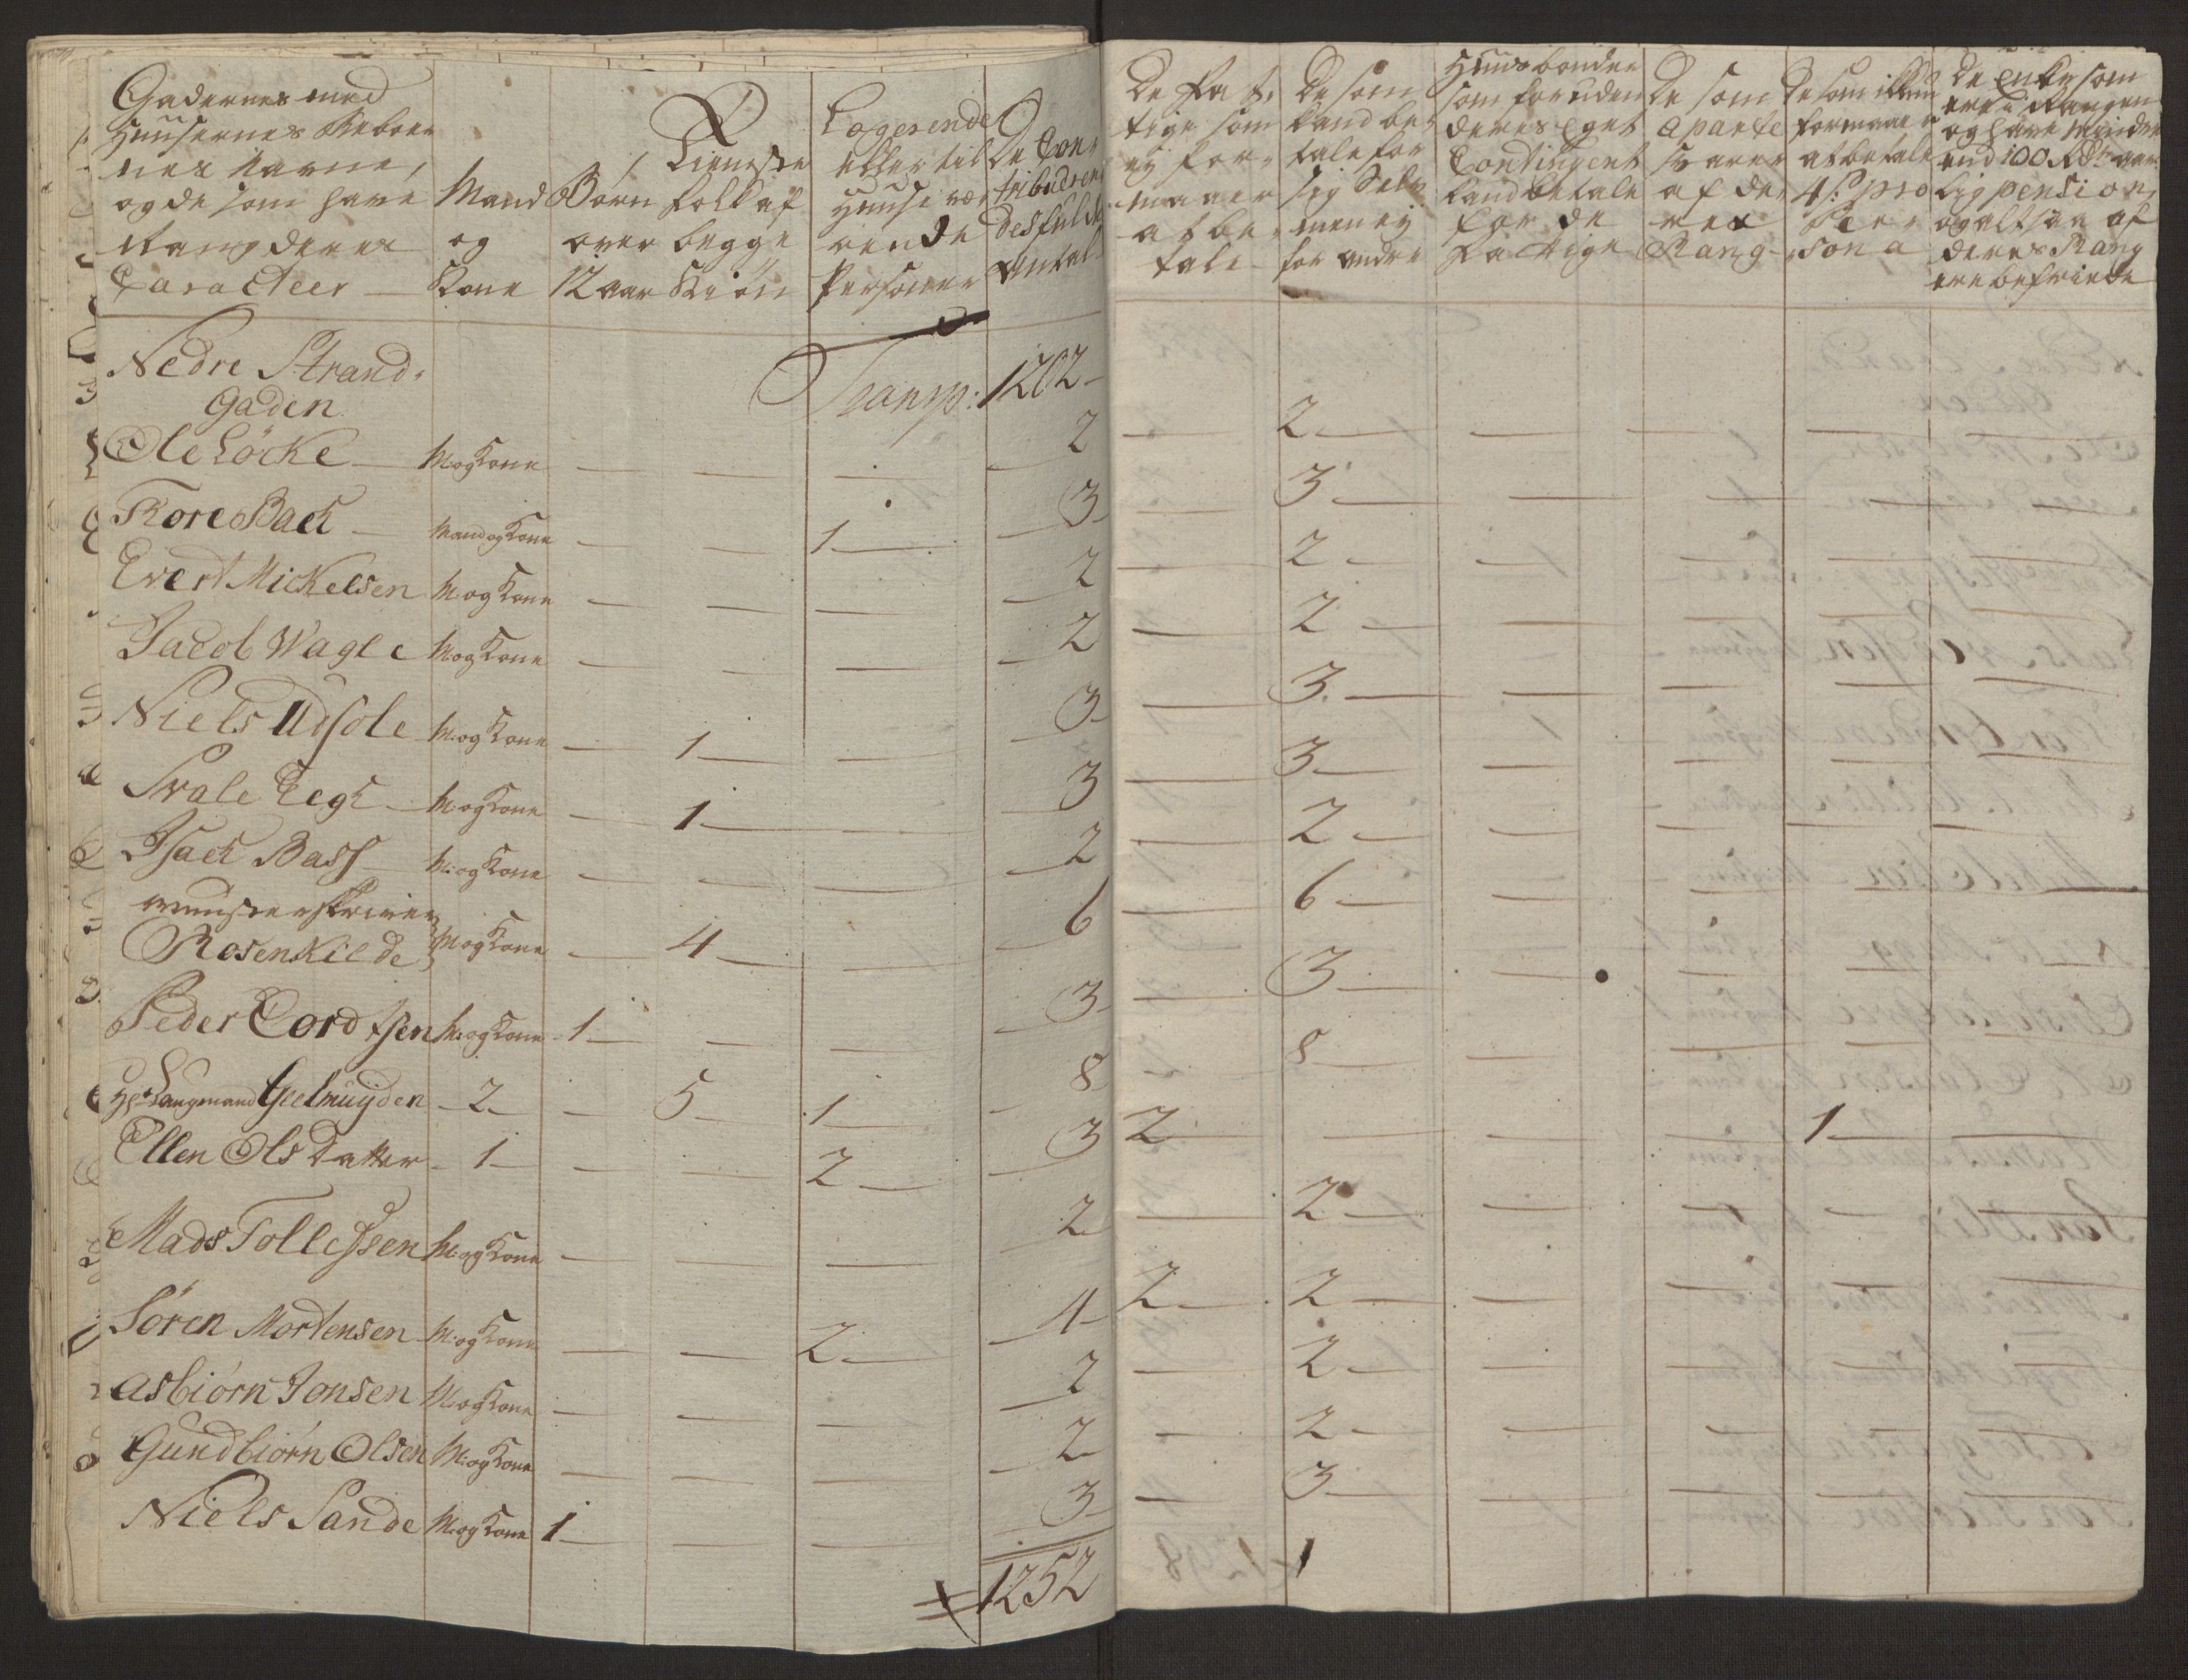 Gadernes med
Huusernes Beboer
nes Navne,
og de som have
Rang deres
Caracteer
Mand
og
Kone
Børn
over
12 aar
Tieneste
folk af
begge
Kiøn
Logerende
eller til
Huuse væ
rende
Personer
De Con
tribuerend
des fulde
Antal
De Fat
tige som
ej for
maaer
at be
tale
De som
kand be
tale for
sig Selv
men ej
for andre
Huusbonder
som foruden
deres Eget
Contingent
kand betale
for de
Fattige
De som
aparte
svarer
af de
res
Rang
De som ikkun
formaae
at betale
4 s. pro
Per
sona
De Enke som
ere i Rangen
og have mindre
end 100 Rdr aar
lig pension
og altsaa af
deres Rang
ere befriede
Nedre Strand
Gaden
Transp: 1202
Ole Löcke M: og Kone — — — 2 — 2 — — — —
Tore Back Mand og Kone — — 1 3 — 3 — — — —
Evert Mickelsen M: og Kone — — — 2 — 2 — — — —
Jacob Wagle M: og Kone — — — 2 — 2 — — — —
Niels Udsole M: og Kone — 1 — 3 — 3 — — — —
Svale Eegk M: og Kone — 1 — 3 — 3 — — — —
Isack Bass M: og Kone — — — 2 — 2 — — — —
Mynsterskriver
Rosenkilde M: og Kone — 4 — 6 — 6 — — — —
Peder Cordtsen M: og Kone 1 — — 3 — 3 — — — —
Hr Laugmand Geelmuyden 2 — 5 1 8 8 — — —
Ellen Ols Datter 1 — — 2 3 2 — — — 1 —
Mads Tollefsen M: og Kone — — — 2 — 2 — — — —
Sören Mortensen M: og Kone — — 2 4 2 2 — — — —
Asbiörn Jonsen M: og Kone — — — 2 — 2 — — — —
Gundbiörn Olsen M: og Kone — — — 2 — 2 — — — —
Niels Sande M: og Kone 1 — — 3 — 3 — — — —
1252